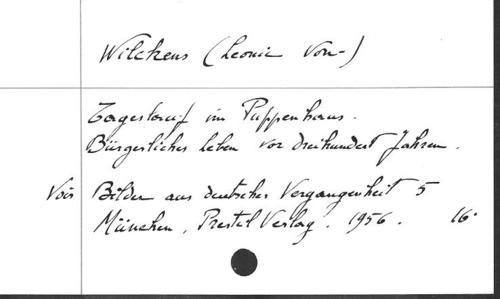 Wilckens (Leonie von-)
Tageslauf im Puppenhaus.
Bürgerliches Leben vor dreihundert Jahren.
Voir Bilder aus deutscher Vergangenheit 5
München, Prestel Verlag. 1956. 16°